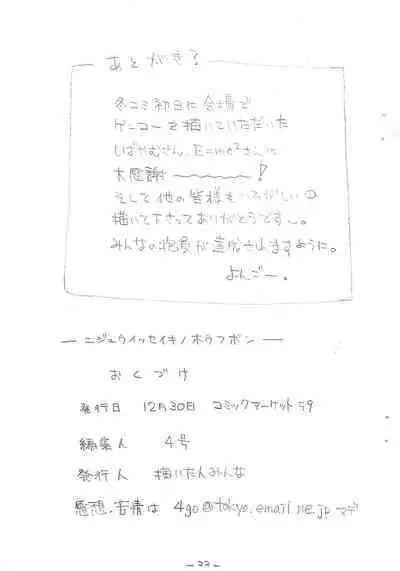 あとがき?
冬コミ初日に会場で
ゲンコーを描いていただいた
しばやむさん、E=mc²さんに
大感謝〜〜〜!
そして他の皆様も
描いて下さってありがとうです〜。
みんなの
ますように。
よんごー。
ニジュウイッセイキノホウフボン
おくづけ
発行日 12月30日 コミックマーケット59
編集人 4号
発行人 描いたみんな
感想・苦情は 4go@tokyo.email.ne.jp マデ
-33-